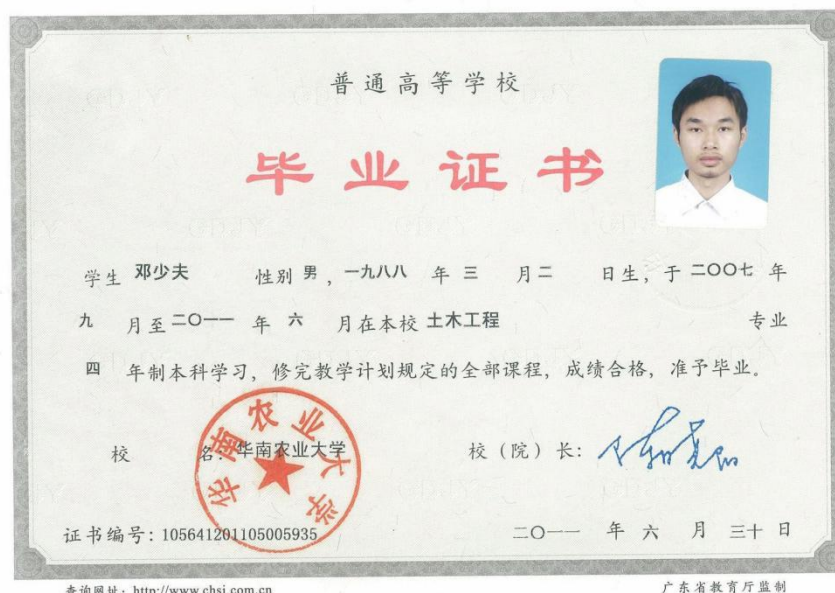 普通高等学校
毕业证书
学生 邓少夫 性别 男，一九八八 年 三 月 二 日生，于 二〇〇七 年
九 月至 二〇一一 年 六 月在本校 土木工程 专业
四 年制本科学习，修完教学计划规定的全部课程，成绩合格，准予毕业。
校 名：华南农业大学 校（院）长：
华南农业大学
证书编号：105641201105005935 二〇一一 年 六 月 三十 日
查询网址：http://www.chsi.com.cn 广东省教育厅监制